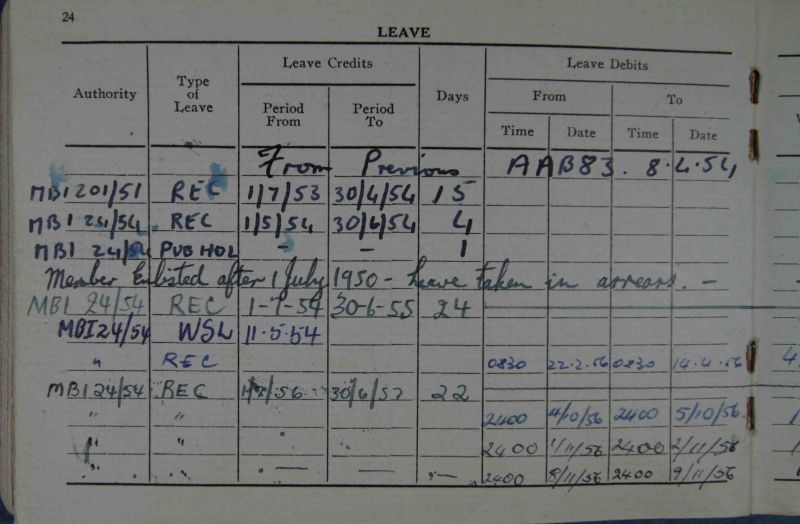 24
LEAVE
Authority Type of Leave Leave Credits Days Leave Debits
Period From Period To From To
Time Date Time Date
From Previous AAB83. 8.4.54
MBI 201/51 REC 1/7/53 30/4/54 15
MBI 24/54 REC 1/5/54 30/6/54 4
MBI 24/54 PUB HOL - - 1
Member Enlisted after 1 July 1950 - leave taken in arrears. -
MBI 24/54 REC 1-7-54 30-6-55 24
MBI 24/54 WSL 11.5.54
" REC 0830 22.2.56 0830 14.4.56
MBI 24/54 REC 1/7/56 30/6/57 22
" " 2400 4/10/56 2400 5/10/56
" " 2400 1/11/56 2400 2/11/56
" " — — — 2400 8/11/56 2400 9/11/56